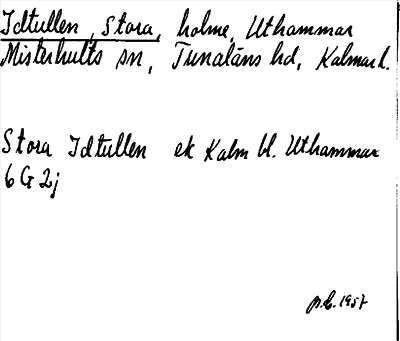 Idtullen, Stora, holme, Uthammar
Misterhults sn, Tunaläns hd, Kalmar l.
Stora Idtullen ek Kalm bl. Uthammar
6 G 2j
1957